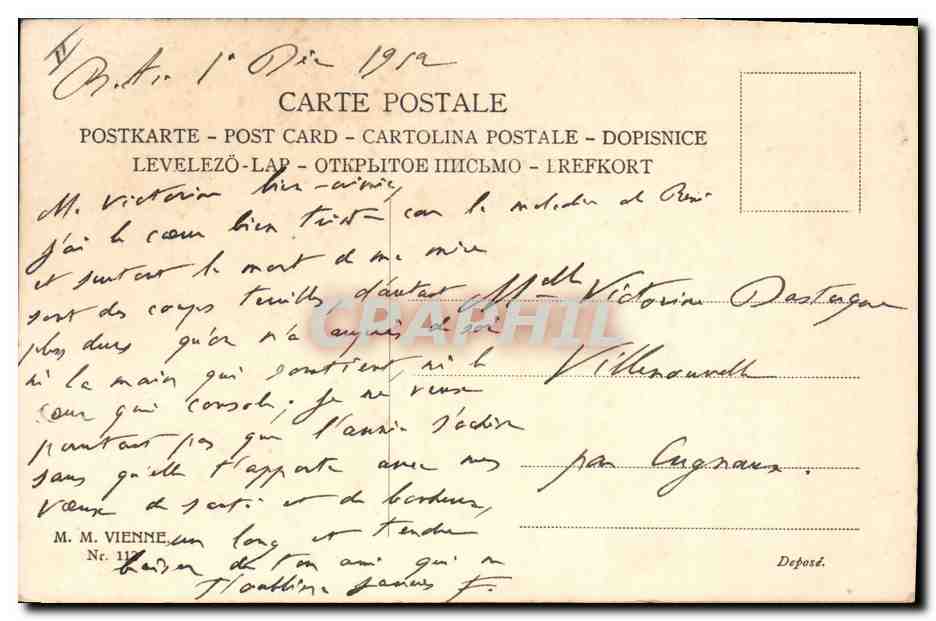 II
B. A. 1º Déc 1912
CARTE POSTALE
POSTKARTE – POST CARD – CARTOLINA POSTALE – DOPISNICE
LEVELEZÖ-LAP – ОТКРЫТОЕ ПИСЬМО – BREFKORT
Ma Victorine bien-aimée,
j'ai le cœur bien triste car la maladie de René
et surtout la mort de ma mère
sont des coups terribles, d'autant
plus durs qu'on n'a auprès de soi
ni la main qui soutient, ni le
cœur qui console. Je ne veux
pourtant pas que l'année s'achève
sans qu'elle t'apporte avec mes
vœux de santé et de bonheur,
un long et tendre
baiser de ton ami qui ne
t'oubliera jamais F.
Melle Victorine
Villenouvelle
par Cugnaux.
CPAPHIL
M. M. VIENNE
Nr. 113
Deposé.